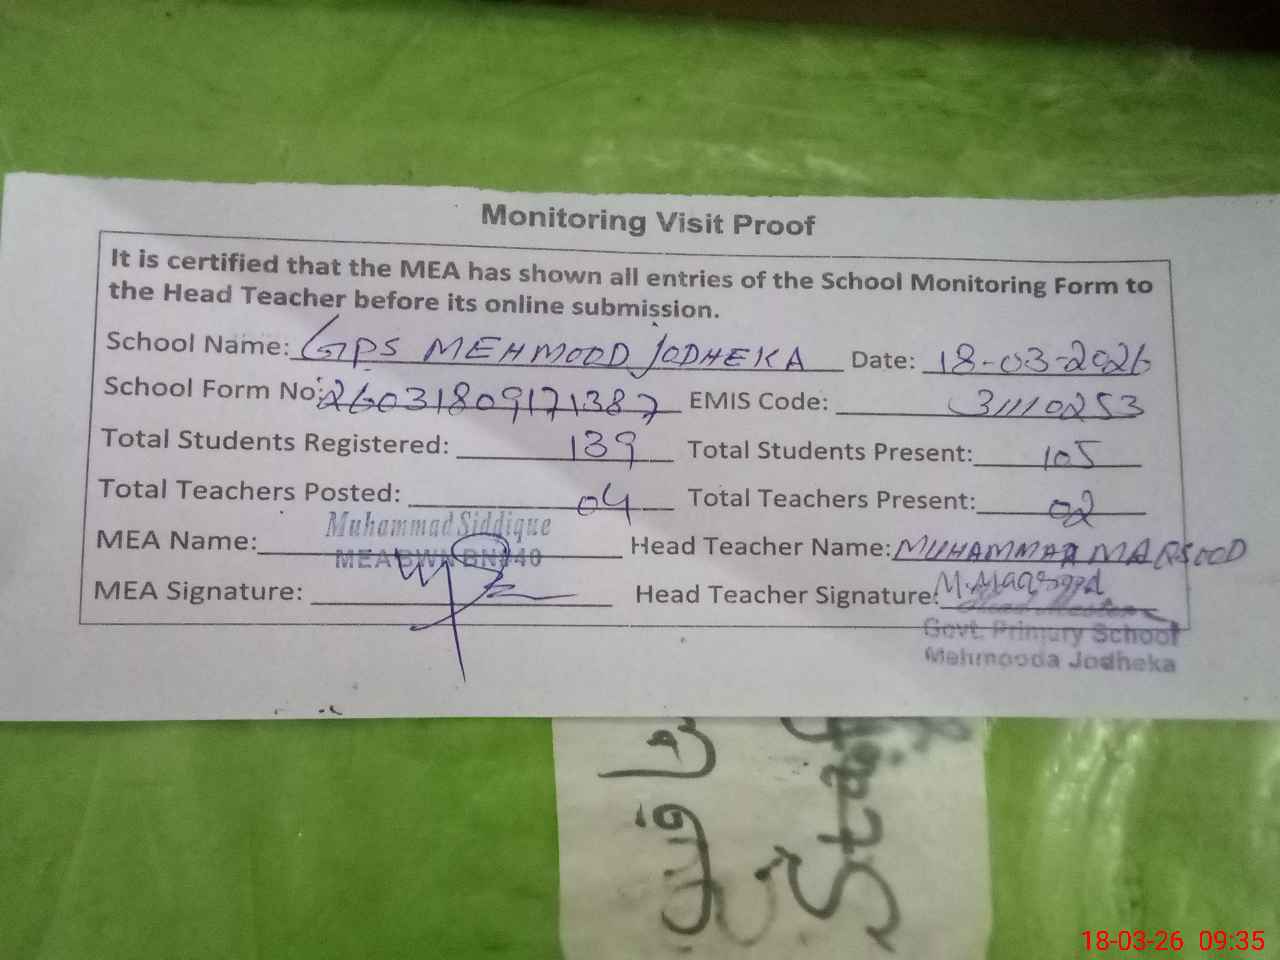 Monitoring Visit Proof
It is certified that the MEA has shown all entries of the School Monitoring Form to
the Head Teacher before its online submission.
School Name: GPS MEHMOOD JODHEKA Date: 18-03-2026
School Form No: 26031809171387 EMIS Code: 31110253
Total Students Registered: 139 Total Students Present: 105
Total Teachers Posted: 04 Total Teachers Present: 02
Muhammad Siddique
MEA Name: MEA BWN BN 40 Head Teacher Name: MUHAMMAD MAQSOOD
MEA Signature: Head Teacher Signature: M. Maqsood
Govt. Primary School
Mehmooda Jodheka
18-03-26 09:35